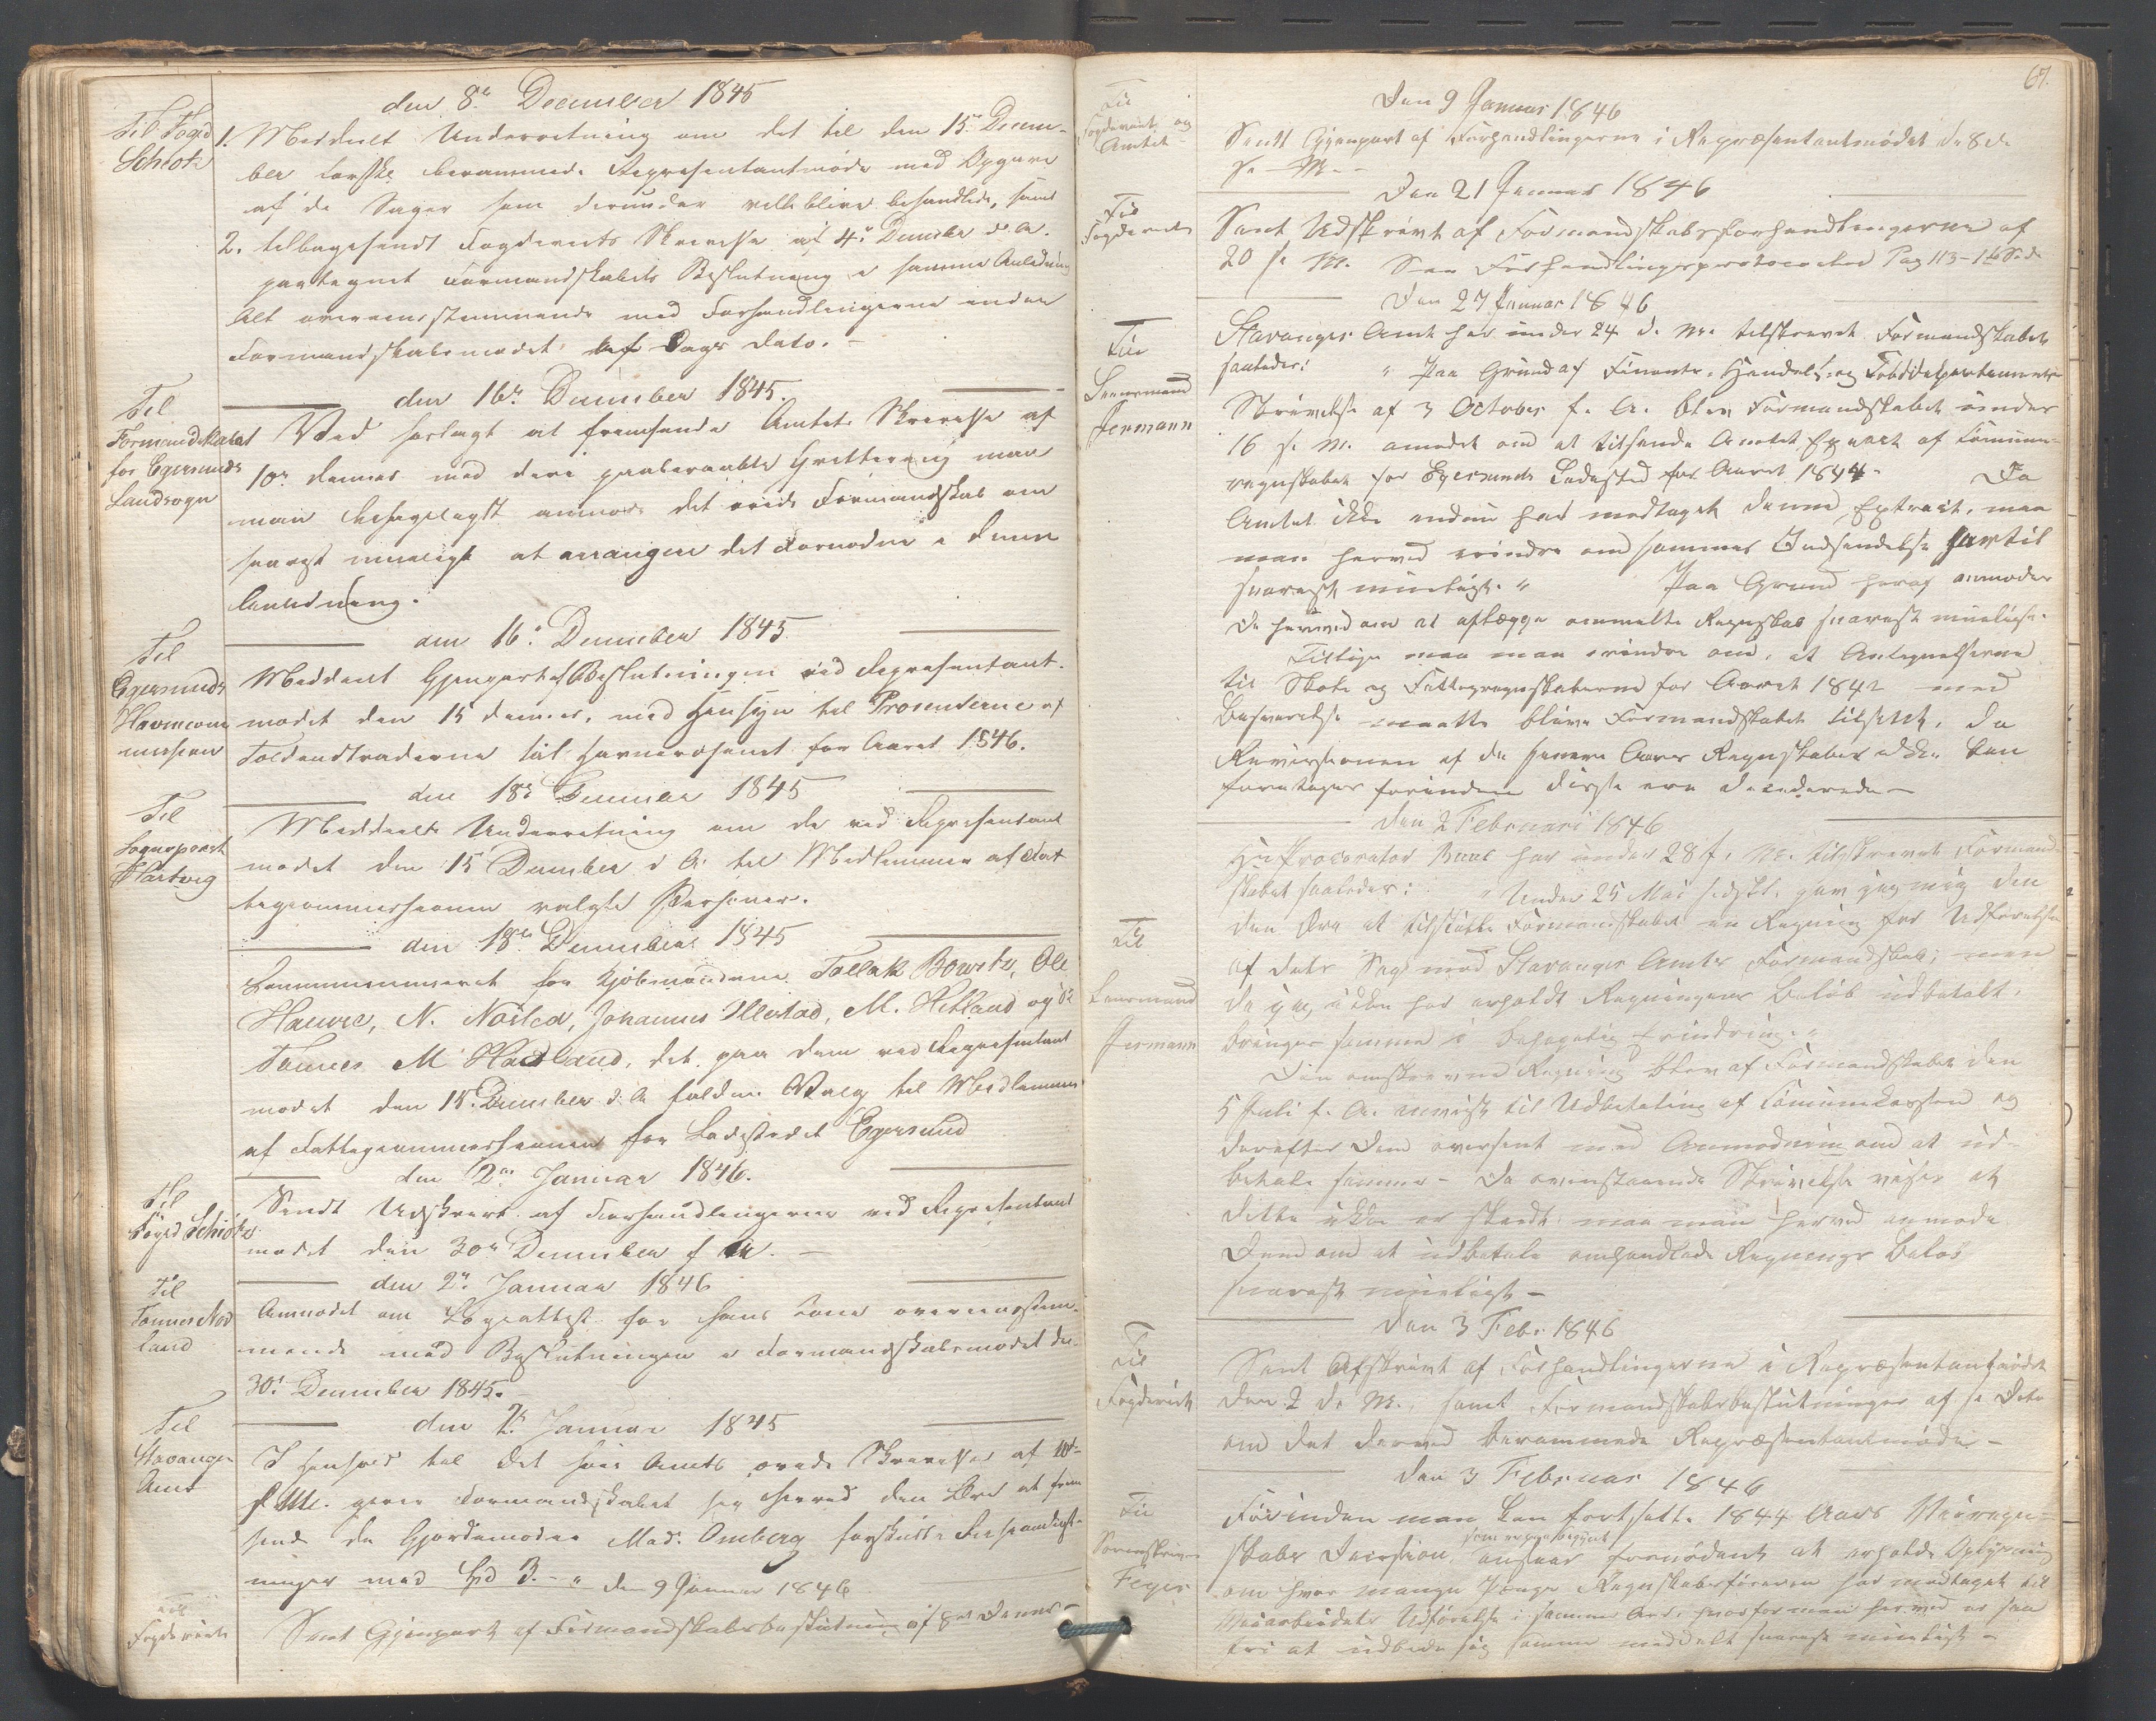 den 8de December 1845
Til Foged
Schiøtz
1. Meddeelt Underretning om det til den 15de Decem-
ber førstk. berammede Repræsentantmøde med Opgave
af de Sager som derunder ville blive behandlede, samt
2. tilbagesendt Fogderiets Skrivelse af 4de December d. A.
paategnet Formandskabets Beslutning i samme Anledning
Alt overeensstemmende med Forhandlingerne under
Formandskabsmødet af Dags Dato. –
den 16de December 1845.
Til
Formandskabet
for Egersunds
Landsogn
Ved herlagt at fremsende Amtets Skrivelse af
10de dennes med deri paaberaabte
man behageligst anmode det ærede Formandskab om
snarest mueligt at arrangere det Fornødne i denne
Anledning.
den 16de December 1845.
Til
Egersunds
Havnecom
mission
Meddeelt Gjenpart af Beslutningen ved Repræsentant-
mødet den 15 dennes, med Hensyn til Prosenterne af
Toldindtraderne til Havnevæsenet for Aaret 1846.
den 18de December 1845
Til
Sogneprest
Hartvig
Meddeelt Underretning om de ved Repræsentant
mødet den 15 December d. A. til Medlemmer af Fat
tigcommissionen valgte Personer.
den 18de December 1845
Communiceret for Kjøbmændene Tollak Bowitz, Ole
Hauvie, N. Nosled, Johannes Ollestad, M. Hetland og
Tønnes M Hadland, det paa dem ved Repræsentant
mødet den 15. December d. A. faldne Valg til Medlemmer
af Fattigcommissionen for Ladestedet Egersund
den 2den Januar 1846.
Til
Foged Schiötz
Sendt Udskrivt af Forhandlingerne ved Repræsentant
mødet den 30te December f. A. –
den 2den Januar 1846
Til
Tønnes Nod
land
Anmodet om Lægeattest for hans Kone overeensstem-
mende med Beslutningen i Formandskabsmødet den
30te December 1845. –
den 2de Januar 1845
Til
Stavanger
Amt
I Henhold til det høie Amts ærede Skrivelse af
f. M. giver Formandskabet sig herved den Ære at frem
sende de Gjordemoder Mad. Omberg forskudte
ninger med Spd 3. – "
den 9 Januar 1846
Til
Fogderiet
Sent Gjenpart af Formandskabsbeslutning af 8de dennes –
67.
Den 9 Januar 1846
Til
Fogderiet og
Amtet
Sendt Gjenpart af Forhandlingerne i Repræsentantmødet de 8de
s. M. –
Den 21 Januar 1846
Til
Fogderiet
Sent Udskrivt af Formandskabsforhandlingerne af
20 s. M. See Forhandlingsprotocollen Pag 113-116 Side
Den 27 Januar 1846
Til
Lensmand
Jermann
Stavanger Amt har under 24 d. M. tilskrevet Formandskabet
saaledes: " Paa Grund af Finants- Handels- og Tolddepartementets
Skrivelse af 3 October f. A. blev Formandskabet under
16 s. M. anmodet om at tilsende Amtet Extract af Commune-
regnskabet for Egersunds Ladested for Aaret 1844. Da
Amtet ikke endnu har modtaget denne Extract, maa
man herved erindre om sammes Indsendelse hertil
snarest mueligst. " Paa Grund heraf anmodes
De herved om at aflægge ommeldte Regnskab snarest mueligst.
Tillige maa man erindre om, at Antegnelserne
til Skole og Fattigregnskaberne for Aaret 1842 med
Besvarelse maatte blive Formandskabet tilsendt, da
Revisionen af de senere Aars Regnskaber ikke kan
foretages forinden disse ere deciderede –
Den 2 Februari 1846
Til
Lensmand
Jermann
Hr Procurator Buus har under 28 f. M. tilskrevet Formand-
skabet saaledes: " Under 25 Mai sidstl. gav jeg mig den
den Ære at tilstille Formandskabet en Regning for Udførelse
af dets Sag mod Stavanger Amts Formandskab; men
da jeg ikke har erholdt Regningens Beløb udbetalt,
bringes samme i behagelig Erindring. "
Den omskrevne Regning blev af Formandskabet den
5 Juli f. A. anviist til Udbetaling af Communekassen og
derefter Dem oversent med Anmodning om at ud-
betale samme – Da ovenstaaende Skrivelse viser at
dette ikke er skeedt, maa man herved anmode
Dem om at udbetale omhandlede Regnings Beløb
snarest mueligst –
Den 3 Febr. 1846
Til
Fogderiet
Sent Afskrivt af Forhandlingerne i Repræsentantmødet
den 2 d. M., samt Formandskabsbeslutninger af s. Dato
om det derved berammede Repræsentantmøde –
Den 3 Februar 1846
Til
Sorenskriver
Feyer
Forinden man kan fortsætte 1844 Aars Veiregn-
skabs Decission, som er paabegynt ansees fornødent at erholde Oplysning
om hvor mange Penge Regnskabsføreren har modtaget til
Veiarbeidets Udførelse i samme Aar, hvorfor man herved er saa
fri at udbede sig samme meddelt snarest mueligt –